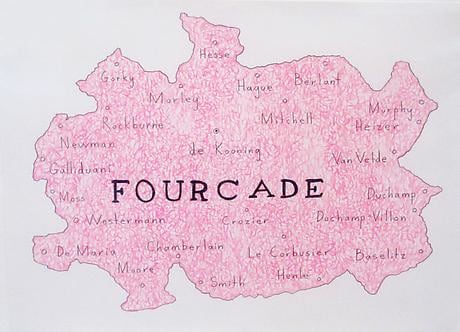 Hesse
Gorky
Hague
Berlant
Marley
Murphy
Rockburne
Mitchell
Heizer
Newman
de Kooning
Van Velde
Galliduani
FOURCADE
Moss
Duchamp
Westermann
Crozier
Duchamp-Villon
De Maria
Chamberlain
Le Corbusier
Baselitz
Moore
Smith